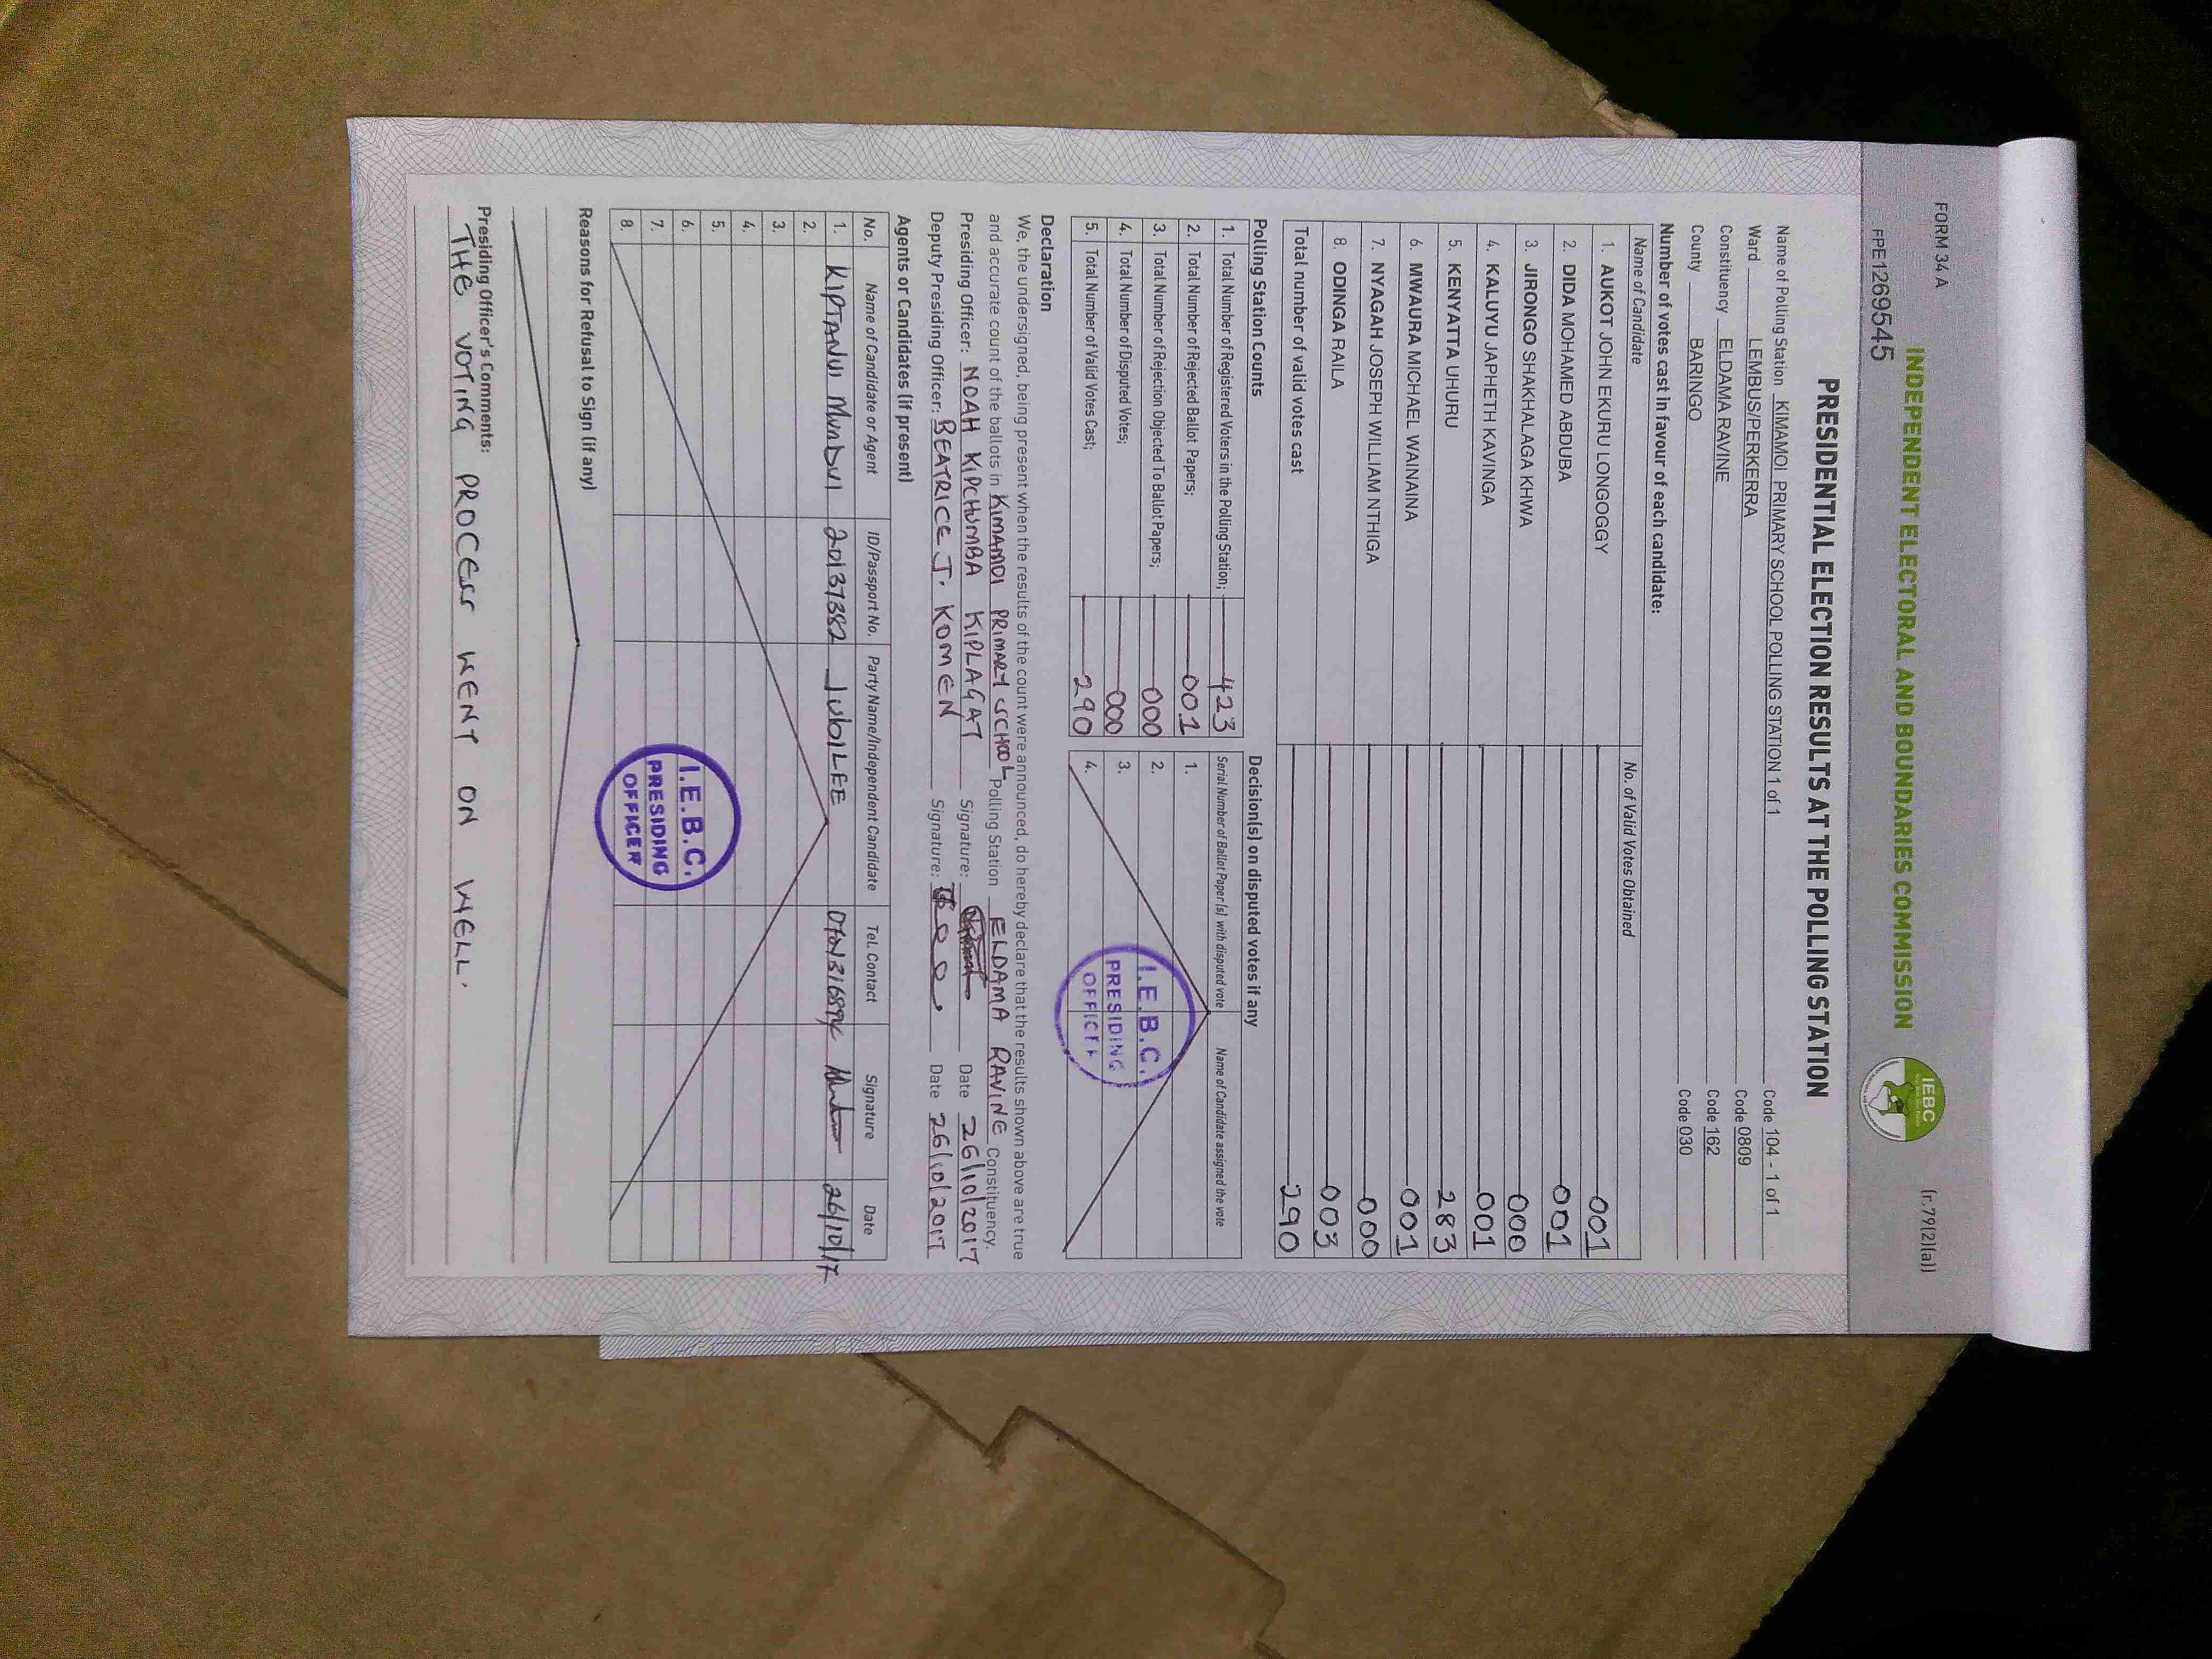 FORM 34 A
(r.79(2)(a))
INDEPENDENT ELECTORAL AND BOUNDARIES COMMISSION
IEBC
FPE1269545
PRESIDENTIAL ELECTION RESULTS AT THE POLLING STATION
Name of Polling Station KIMAMOI PRIMARY SCHOOL POLLING STATION 1 of 1 Code 104 - 1 of 1
Ward LEMBUS/PERKERRA Code 0809
Constituency ELDAMA RAVINE Code 162
County BARINGO Code 030
Number of votes cast in favour of each candidate:
Name of Candidate No. of Valid Votes Obtained
1. AUKOT JOHN EKURU LONGOGGY 001
2. DIDA MOHAMED ABDUBA 001
3. JIRONGO SHAKHALAGA KHWA 000
4. KALUYU JAPHETH KAVINGA 001
5. KENYATTA UHURU 283
6. MWAURA MICHAEL WAINAINA 001
7. NYAGAH JOSEPH WILLIAM NTHIGA 000
8. ODINGA RAILA 003
Total number of valid votes cast 290
Polling Station Counts Decision(s) on disputed votes if any
1. Total Number of Registered Voters in the Polling Station; 423 Serial Number of Ballot Paper(s) with disputed vote Name of Candidate assigned the vote
2. Total Number of Rejected Ballot Papers; 001 1.
3. Total Number of Rejection Objected To Ballot Papers; 000 2.
4. Total Number of Disputed Votes; 000 3.
5. Total Number of Valid Votes Cast; 290 4.
I.E.B.C.
PRESIDING
OFFICER
Declaration
We, the undersigned, being present when the results of the count were announced, do hereby declare that the results shown above are true
and accurate count of the ballots in KIMAMOI PRIMARY SCHOOL Polling Station ELDAMA RAVINE Constituency.
Presiding Officer: NOAH KIPCHUMBA KIPLAGAT Signature: Date 26/10/2017
Deputy Presiding Officer: BEATRICE J. KOMEN Signature: Date 26/10/2017
Agents or Candidates (if present)
No. Name of Candidate or Agent ID/Passport No. Party Name/Independent Candidate Tel. Contact Signature Date
1. KIPTANUI 20137382 JUBILEE 26/10/17
2.
3.
4.
5.
6.
7.
8.
I.E.B.C.
PRESIDING
OFFICER
Reasons for Refusal to Sign (if any)
Presiding Officer's Comments:
THE VOTING PROCESS WENT ON WELL.